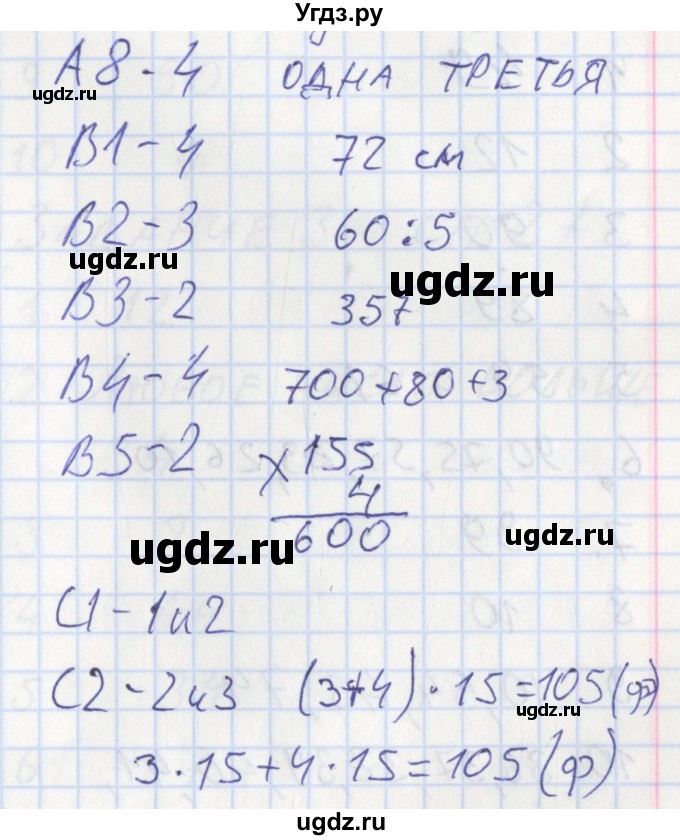 Угдз.ру
А8-4 ОДНА ТРЕТЬЯ
ugdz.ru
В1-4 72 см
В2-3 60:5
ugdz.ru
ugdz.ru
В3-2 357
В4-4 700+80+3
В5-2 × 155
4
600
ugdz.ru
ugdz.ru
С1-1и2
С2-2и3 (3+4)·15=105(ф)
ugdz.ru
3·15+4·15=105(ф)
ugdz.ru
ugdz.ru